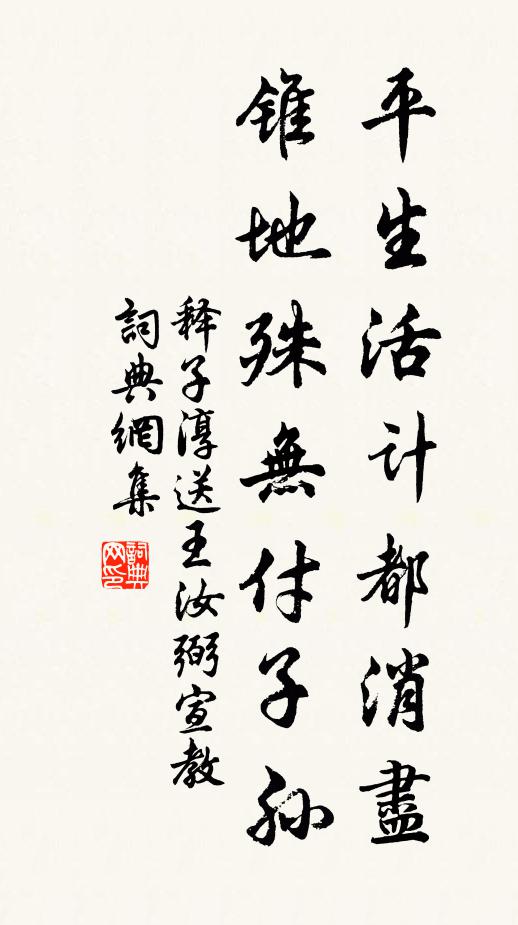 平生活计都消盡
錐地殊無付子孫
释子淳送王汝弼宣教
詞典網集
詞典网印